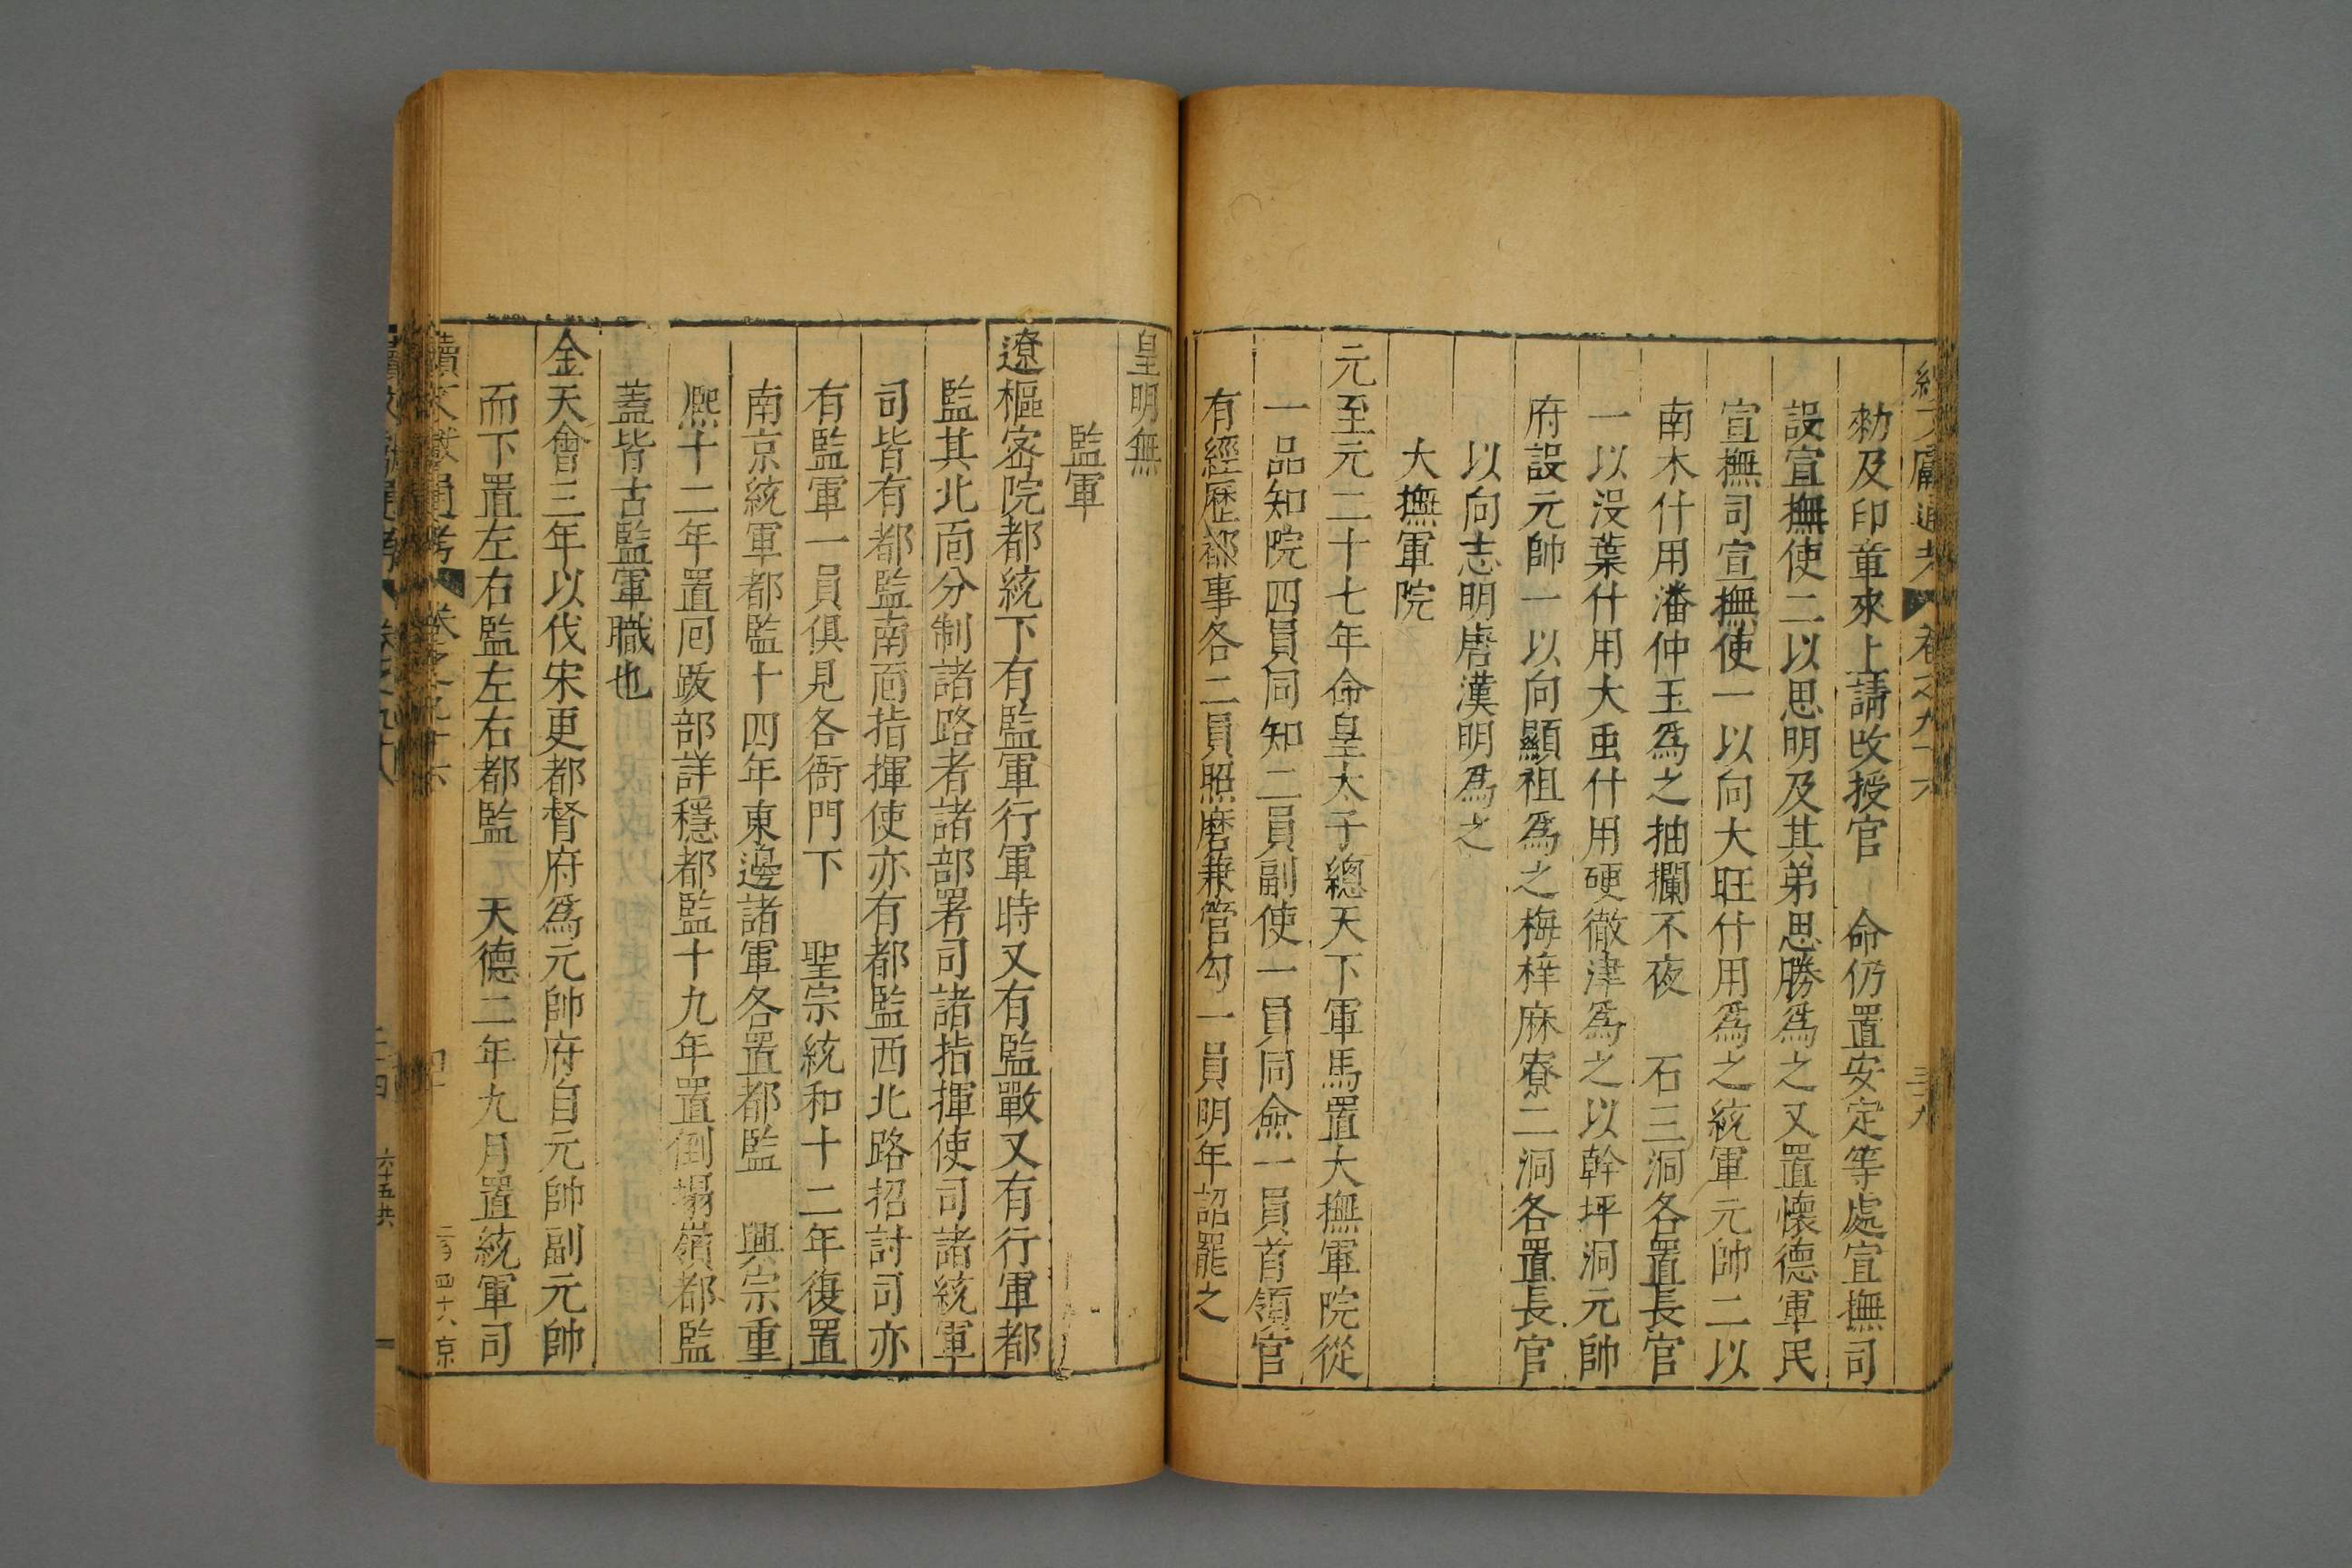 續文獻通考 卷之九十六 三十九
勑及印章來上請改授官 命仍置安定等處宣撫司
設宣撫使二以思明及其弟思勝爲之又置懷德軍民
宣撫司宣撫使一以向大旺什用爲之統軍元帥二以
南木什用潘仲玉爲之抽攔不夜 石三洞各置長官
一以没葉什用大虫什用硬徹律爲之以幹坪洞元帥
府設元帥一以向顯祖爲之梅梓麻寮二洞各置長官
以向志明唐漢明爲之
大撫軍院
元至元二十七年命皇太子總天下軍馬置大撫軍院從
一品知院四員同知二員副使一員同僉一員首領官
有經歷都事各二員照磨兼管勾一員明年詔罷之
皇明無
監軍
遼樞密院都統下有監軍行軍時又有監戰又有行軍都
監其北面分制諸路者諸部署司諸指揮使司諸統軍
司皆有都監南面指揮使亦有都監西北路招討司亦
有監軍一員俱見各衙門下 聖宗統和十二年復置
南京統軍都監十四年東邊諸軍各置都監 興宗重
熙十二年置囘跋部詳穩都監十九年置倒塌嶺都監
蓋皆古監軍職也
金天會三年以伐宋更都督府爲元帥府自元帥副元帥
而下置左右監左右都監 天德二年九月置統軍司
續文獻通考 卷之九十六 四十